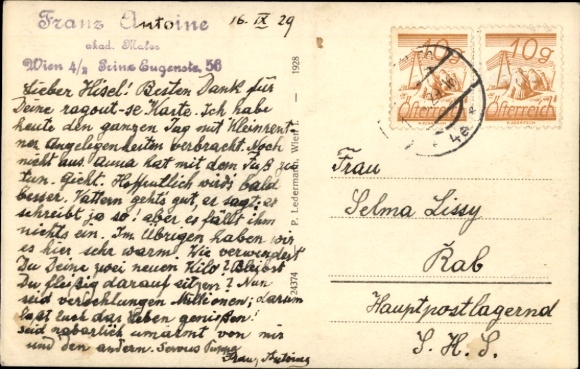 Franz Antoine
akad. Maler
Wien 4/2 Prinz Eugenstr. 56
16. IX 29
Lieber Hisel! Besten Dank für
Deine ragout-se Karte. Ich habe
heute den ganzen Tag mit Kleinrent-
ner Angelegenheiten verbracht. Noch
nicht aus. Anna hat mit dem Fuß zu
tun. Gicht. Hoffentlich wird's bald
besser. Vattern gehts gut, er sagt: er
schreibt ja so! aber es fällt ihm
nichts ein. Im Übrigen haben wir
es hier sehr warm. Wie verwendest
Du Deine zwei neuen Kilo? Bleibst
Du fleißig darauf sitzen? Nun
seid verschlungen Millionen; darum
laßt euch das Leben genießen!
Seid umarmt von mir
und den andern. Servus
Franz Antoine
24374 P. Ledermann, Wien I. — 1928
10g 10g
Österreich Österreich
Frau
Selma Lissy
Rab
Hauptpostlagernd
S. H. S.